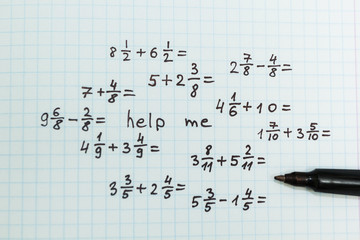 8 1/2 + 6 1/2 =
2 7/8 - 4/8 =
5 + 2 3/8 =
7 + 4/8 =
4 1/6 + 10 =
9 6/8 - 2/8 = help me
1 7/10 + 3 5/10 =
4 1/9 + 3 4/9 =
3 8/11 + 5 2/11 =
3 3/5 + 2 4/5 =
5 3/5 - 1 4/5 =